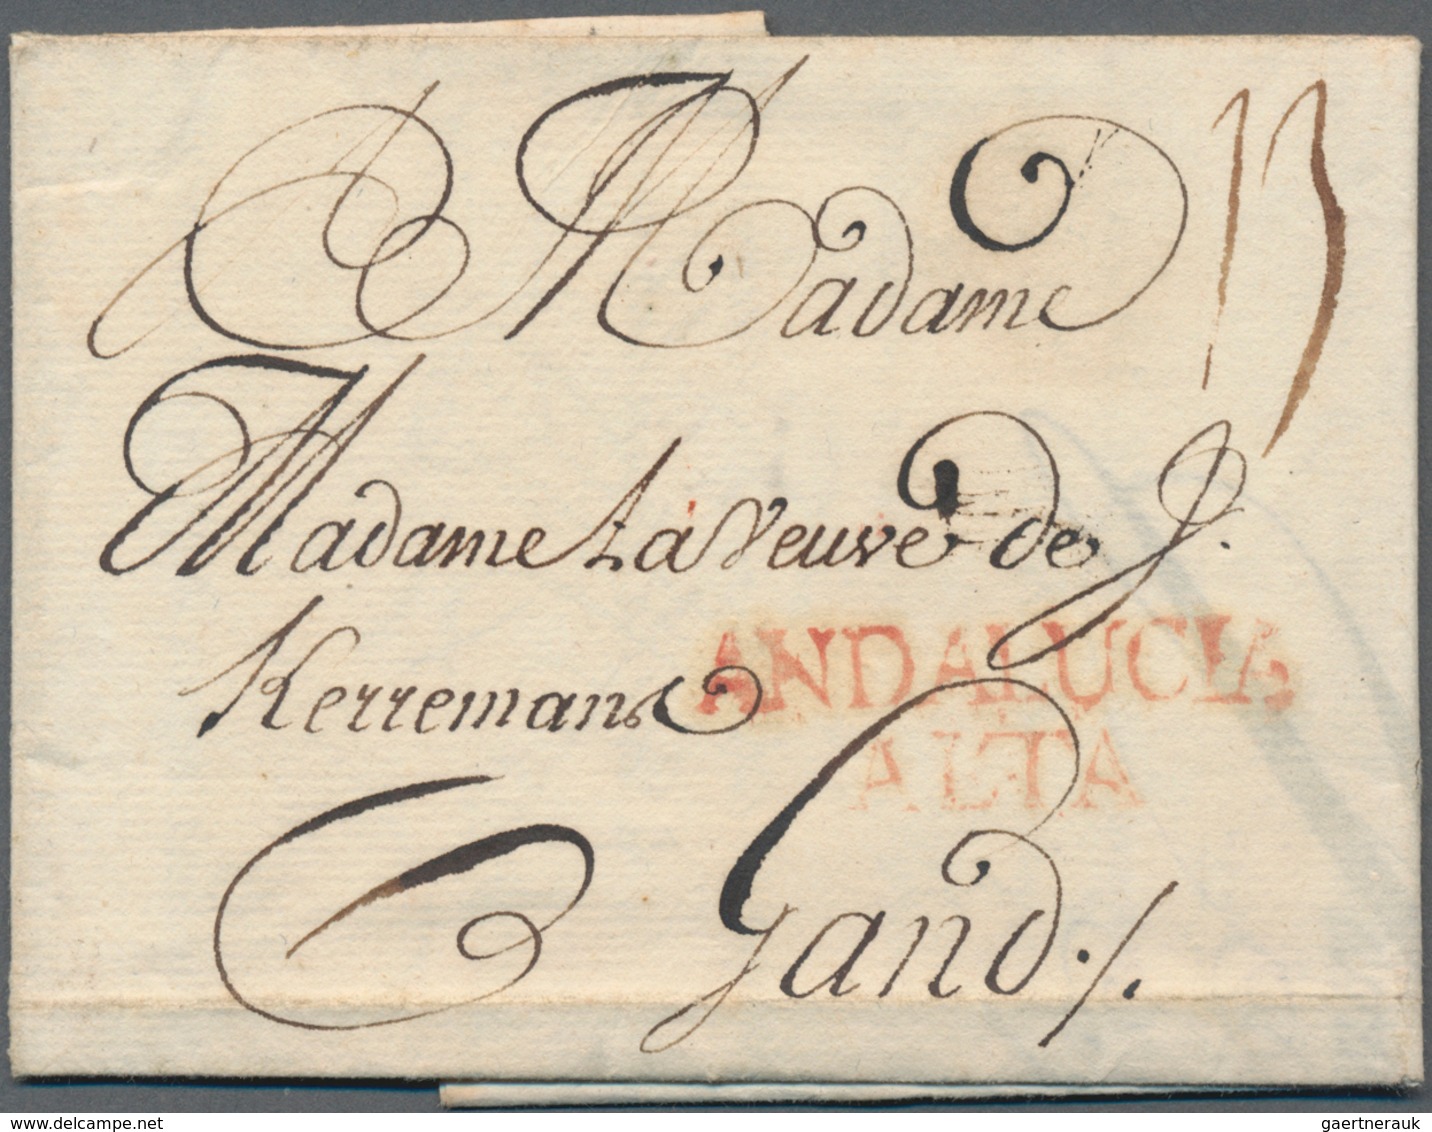 Madame
Madame La Veuve de J.
Kerremans
ANDALUCIA
ALTA
Gand ./.
delcampe.net
gaertnerauk